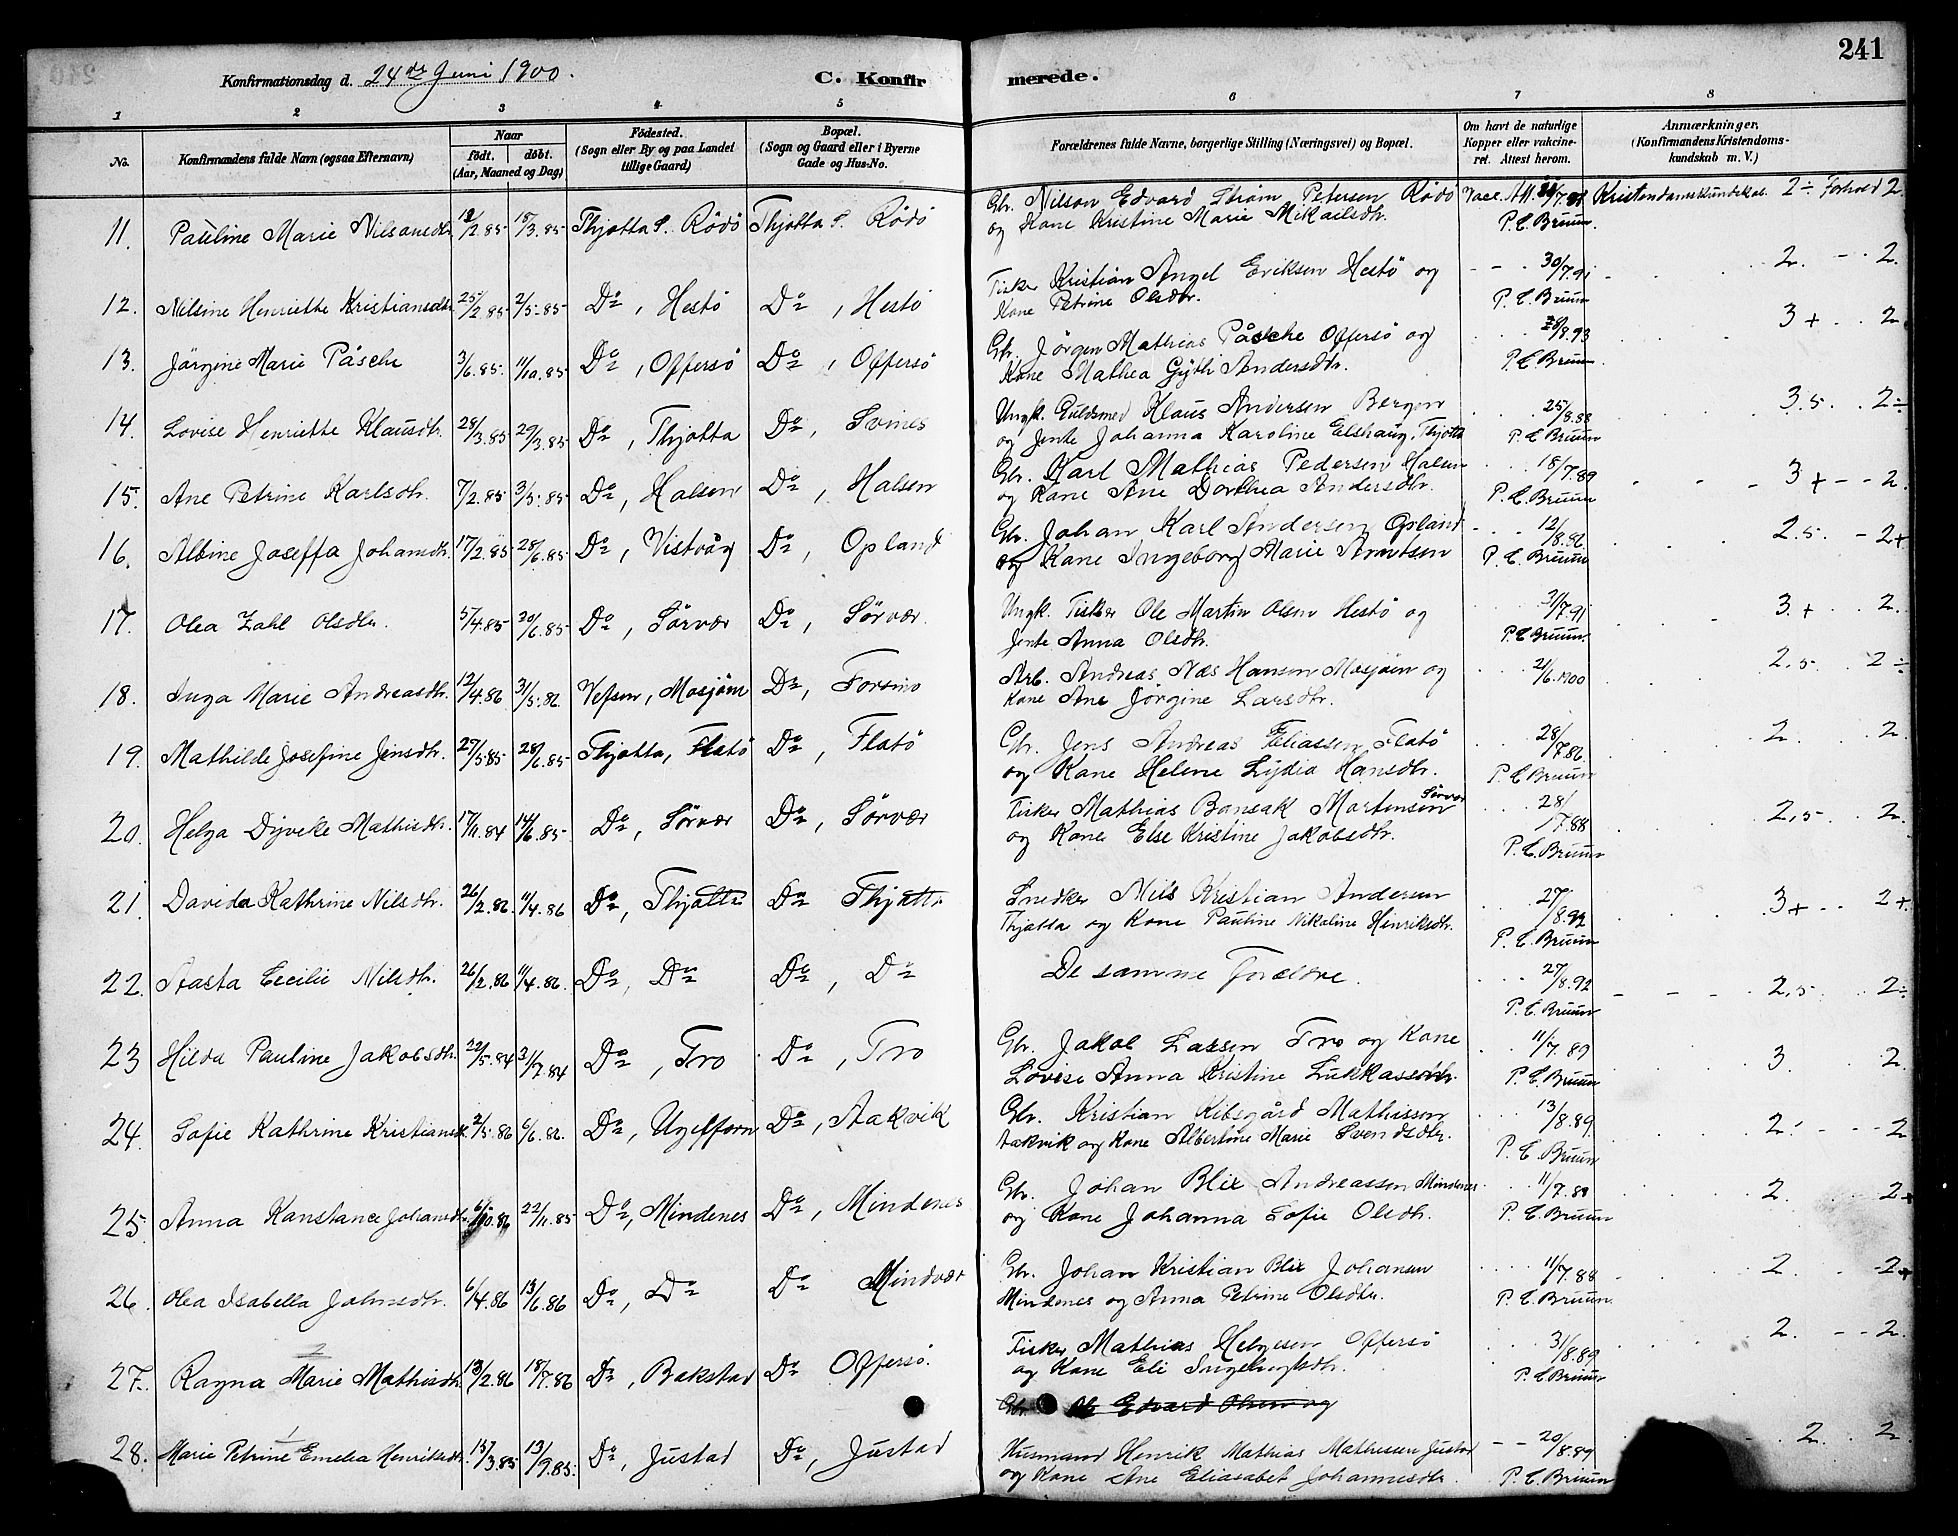 241
Konfirmationsdag d. 24de Juni 1900.
C. Konfirmerede.
1 2 3 4 5 6 7 8
No.
Konfirmandens fulde Navn (ogsaa Efternavn)
Naar
født. døbt.
(Aar, Maaned og Dag)
Fødested.
(Sogn eller By og paa Landet
tillige Gaard)
Bopæl.
(Sogn og Gaard eller i Byerne
Gade og Hus-No.
Forældrenes fulde Navne, borgerlige Stilling (Næringsvei) og Bopæl.
Om havt de naturlige
Kopper eller vakcine-
ret. Attest herom.
Anmærkninger,
(Konfirmandens Kristendoms-
kundskab m. V.)
11. Pauline Marie Nilsensdtr. 12/2.85 15/3.85 Thjøtta S. Rödö Thjøtta S. Rödö Gbr. Nilson Edvard Strøm Petersen Rödö Vacc. Att. Kristendomskundskab 2÷ Forhold 2.
og Kone Kristine Marie Mikailsdtr. P. C. Bruun.
12. Nilsine Henriette Kristiansdtr. 25/2.85 2/5.85 Do, Hestö Do, Hestö Fisker Kristian Angel Eriksen Hestö og 30/7.91 2. - 2.
Kone Petrine Olsdtr. P. C. Bruun
13. Jörgine Marie Påsche 3/6.85. 11/10.85 Do, Offersö Do, Offersö Gbr. Jörgen Mathias Påsche Offersö og 28/8.93 3+ 2.
Kone Mathea Gjøth Andersdtr. P. C. Bruun
14. Lovise Henriette Klausdtr. 28/3.85 29/3.85 Do, Thjøtta Do, Svines Ungk. Guldsmed Klaus Andersen Bergen 25/8.88 3.5. 2÷
og Jente Johanna Karoline Elshaug, Thjøtta P. C. Bruun
15. Ane Petrine Karlsdtr. 7/2.85 3/5.85 Do, Halsen Do, Halsen Gbr. Karl Mathias Pedersen Halsen 18/7.89 3+ - - 2.
og Kone Ane Dorthea Andersdtr. P. C. Bruun
16. Albine Joseffa Johansdtr. 17/2.85 28/6.85 Do, Vistvåg Do, Opland Gbr. Johan Karl Andersen Opland 12/8.86. 2.5. - 2+
og Kone Ingeborg Marie Arntsen P. C. Bruun
17. Olea Zahl Olsdtr. 5/4.85 20/6.85 Do, Sörvær Do, Sörvær. Ungk. Fisker Ole Martin Olsen Hestö og 31/7.91 3+ 2.
Jente Anna Olsdtr. P. C. Bruun
18. Inga Marie Andreasdtr. 12/4.86 31/5.86. Vefsen, Mosjøen Do, Forsmo Arb. Andreas Næs Hansen Mosjöen og 21/6.1900 2,5. 2÷
Kone Ane Jörgine Larsdtr.
19. Mathilde Josefine Jensdtr. 27/5.85 28/6.85 Thjøtta, Flatö Do, Flatö Gbr. Jens Andreas Eliassen Flatö 28/7.86. 2. 2.
og Kone Helene Lydia Hansdtr. P. C. Bruun
20. Helga Dyveke Mathisdtr. 17/11.84 14/6.85 Do, Sörvær Do, Sörvær Fisker Mathias Bansak Mortensen Sörvær 28/7.88 2,5 2.
og Kone Else Kristine Jakobsdtr. P. C. Bruun
21. Davida Kathrine Nilsdtr. 26/2.86. 11/4.86 Do, Thjøtta Do Thjøtta Snedker Nils Kristian Andersen 27/8.92 3+ 2+.
Thjøtta og Kone Pauline Nikoline Hinriksdtr. P. C. Bruun
22. Aasta Cecilie Nilsdtr. 26/2.86 11/4.86. Do, Do Do, Do De samme Forældre. 27/8.92 2,5 2÷
P. C. Bruun
23 Hilda Pauline Jakobsdtr. 22/5.84 3/7.84 Do, Tro Do, Tro Gbr. Jakob Larsen Tro og Kone 11/7.89 3. 2.
Lovise Anna Kristine Lukkassdtr. P. C. Bruun
24. Sofie Kathrine Kristiansdtr. 2/5.86 6/6.86. Do, Ugelforn Do, Aakvik Gbr. Kristian Kibsgård Mathissen 13/8.89. 2. - - - 2
Aakvik og Kone Albertine Marie Svendsdtr. P. C. Bruun
25. Anna Konstance Johansdtr. 22/11.85 Do, Mindenes Do, Mindenes Gbr. Johan Blix Andreassen Mindenes 11/7.88 2. 2+
og Kone Johanna Sofie Olsdtr. P. C. Bruun
26. Olea Isabella Johnsdtr. 6/4.86 13/6.86 Do, Do Do Mindvær Gbr. Johan Kristian Blix Johansen 11/7.88 2. -2+
Mindenes og Anna Petrine Olsdtr. P. C. Bruun.
2
27. Ragna Marie Mathisdtr. 13/2.86 18/7.86 Do, Bakstad Do Offersö. Fisker Mathias Helgesen Offersö 31/8.89 2. - - 2.
og Kone Eli Ingebrigtsdtr. P. C. Bruun
Gbr. Edvard Olsen og
1
28. Marie Petrine Emelia Henriksdtr. 15/3.85 13/9.85. Do, Justad Do, Justad Husmand Henrik Mathias Mathisen Justad 20/8.89 2. 2.
og Kone Ane Eliasabet Johannesdtr. P. C. Bruun